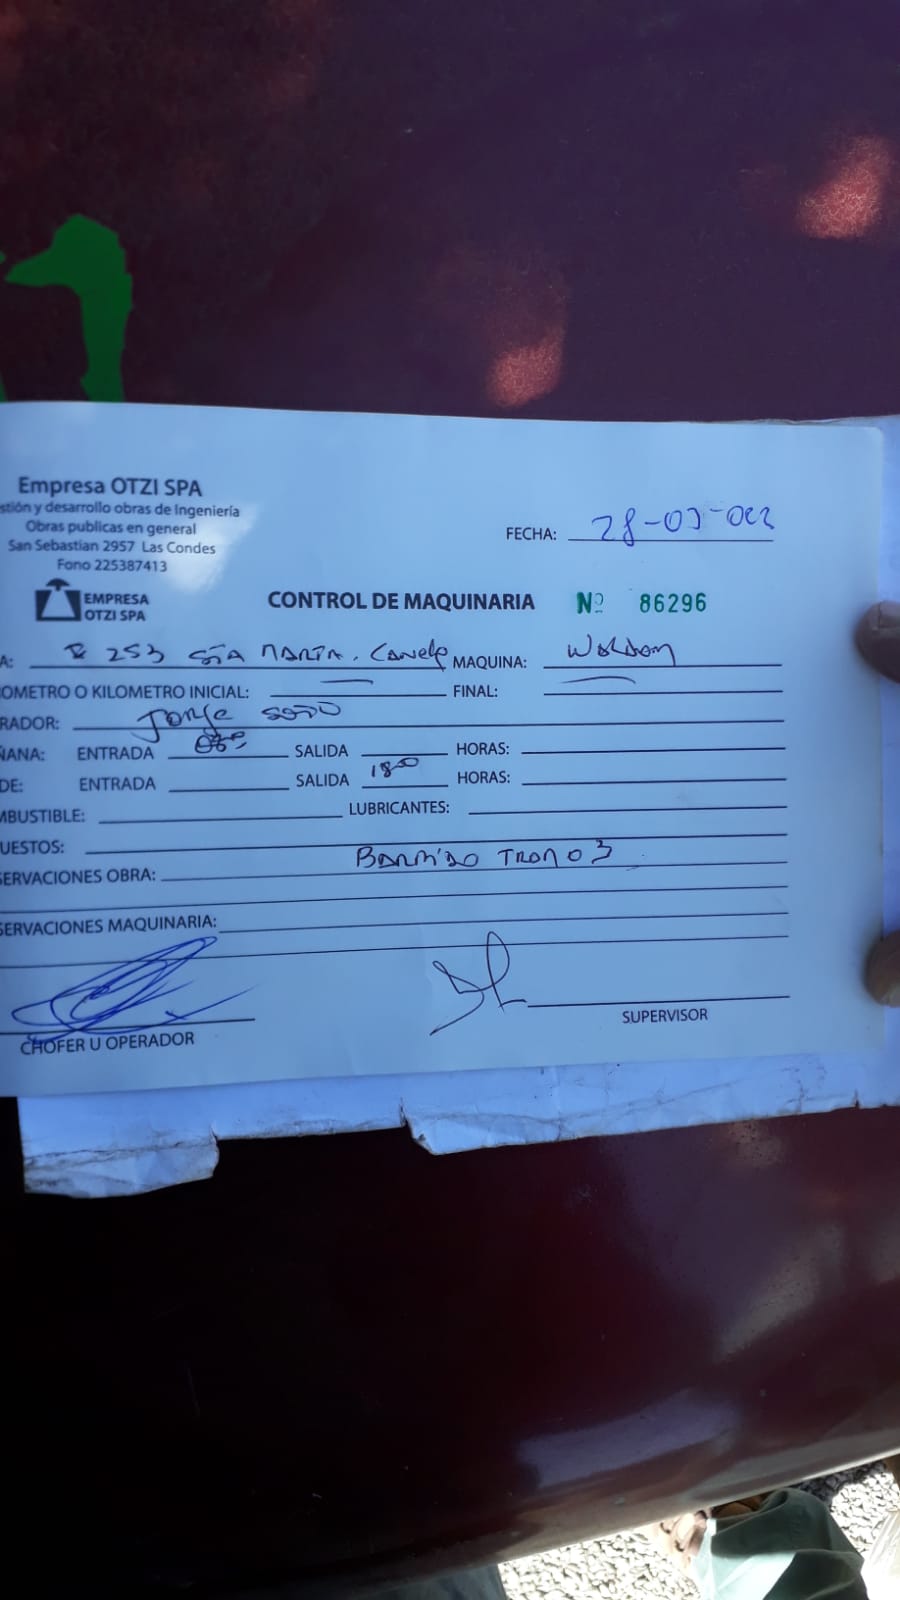 Empresa OTZI SPA
stión y desarrollo obras de Ingeniería
Obras publicas en general
San Sebastian 2957 Las Condes
Fono 225387413
EMPRESA
OTZI SPA
FECHA: 28-03-022
CONTROL DE MAQUINARIA Nº 86296
A: 253 STA MARIA. Canelo MAQUINA: Waldon
OMETRO O KILOMETRO INICIAL: FINAL:
RADOR: Jorge SOTO
ÑANA: ENTRADA SALIDA HORAS:
DE: ENTRADA SALIDA 1800 HORAS:
MBUSTIBLE: LUBRICANTES:
UESTOS:
SERVACIONES OBRA: BARRIDO TRAMO 3
SERVACIONES MAQUINARIA:
CHOFER U OPERADOR SUPERVISOR